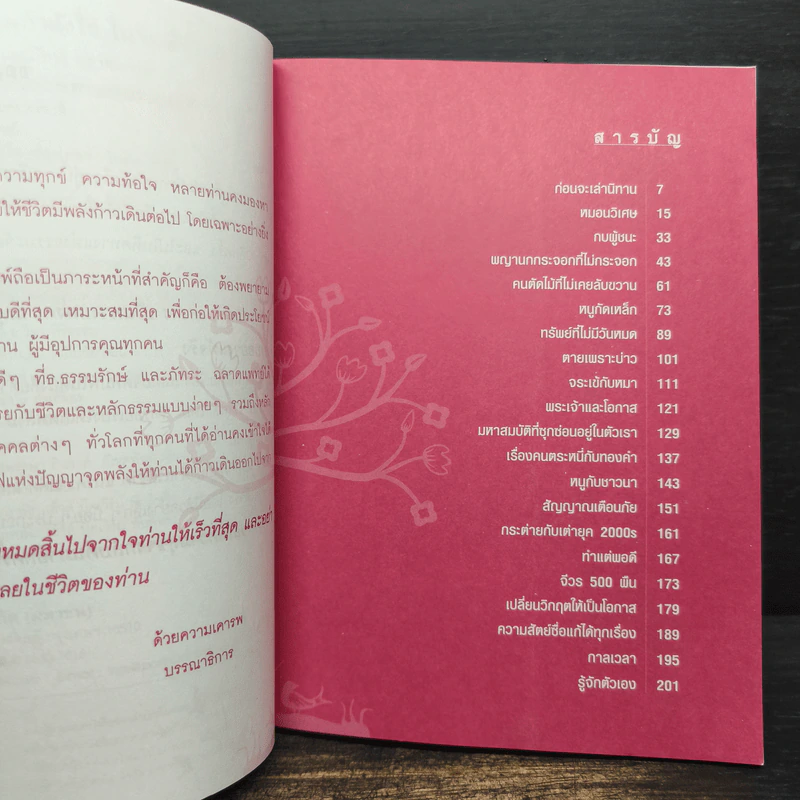 ความทุกข์ ความท้อใจ หลายท่านคงมองหา
ให้ชีวิตมีพลังก้าวเดินต่อไป โดยเฉพาะอย่างยิ่ง
ถือเป็นภาระหน้าที่สำคัญก็คือ ต้องพยายาม
ดีที่สุด เหมาะสมที่สุด เพื่อก่อให้เกิดประโยชน์
ผู้มีอุปการคุณทุกคน
ดีๆ ที่ธ.ธรรมรักษ์ และภัทระ ฉลาดแพทย์ได้
กับชีวิตและหลักธรรมแบบง่ายๆ รวมถึงหลัก
ต่างๆ ทั่วโลกที่ทุกคนที่ได้อ่านคงเข้าใจได้
แห่งปัญญาจุดพลังให้ท่านได้ก้าวเดินออกไปจาก
หมดสิ้นไปจากใจท่านให้เร็วที่สุด และอย่า
ในชีวิตของท่าน
ด้วยความเคารพ
บรรณาธิการ
สารบัญ
ก่อนจะเล่านิทาน 7
หมอนวิเศษ 15
กบผู้ชนะ 33
พญานกกระจอกที่ไม่กระจอก 43
คนตัดไม้ที่ไม่เคยลับขวาน 61
หนูกัดเหล็ก 73
ทรัพย์ที่ไม่มีวันหมด 89
ตายเพราะบ่าว 101
จระเข้กับหมา 111
พระเจ้าและโอกาส 121
มหาสมบัติที่ซุกซ่อนอยู่ในตัวเรา 129
เรื่องคนตระหนี่กับทองคำ 137
หนูกับชาวนา 143
สัญญาณเตือนภัย 151
กระต่ายกับเต่ายุค 2000s 161
ทำแต่พอดี 167
จีวร 500 ผืน 173
เปลี่ยนวิกฤตให้เป็นโอกาส 179
ความสัตย์ซื่อแก้ได้ทุกเรื่อง 189
กาลเวลา 195
รู้จักตัวเอง 201